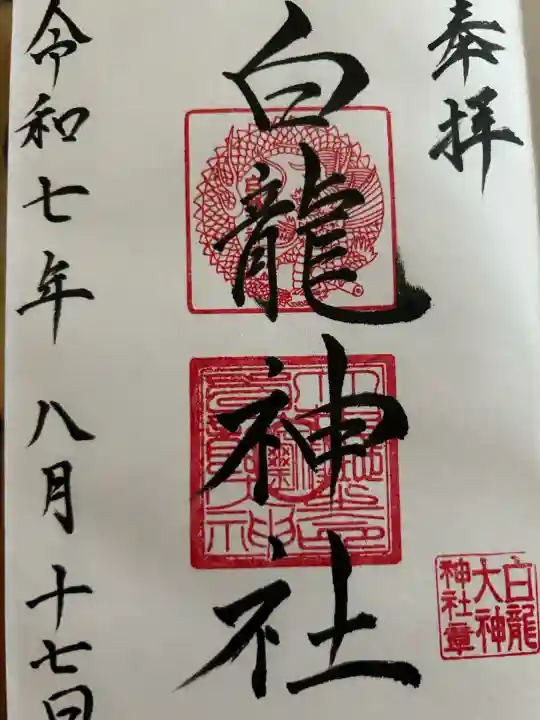 奉拝
白龍神社
白龍
大神
神社章
令和七年 八月 十七日